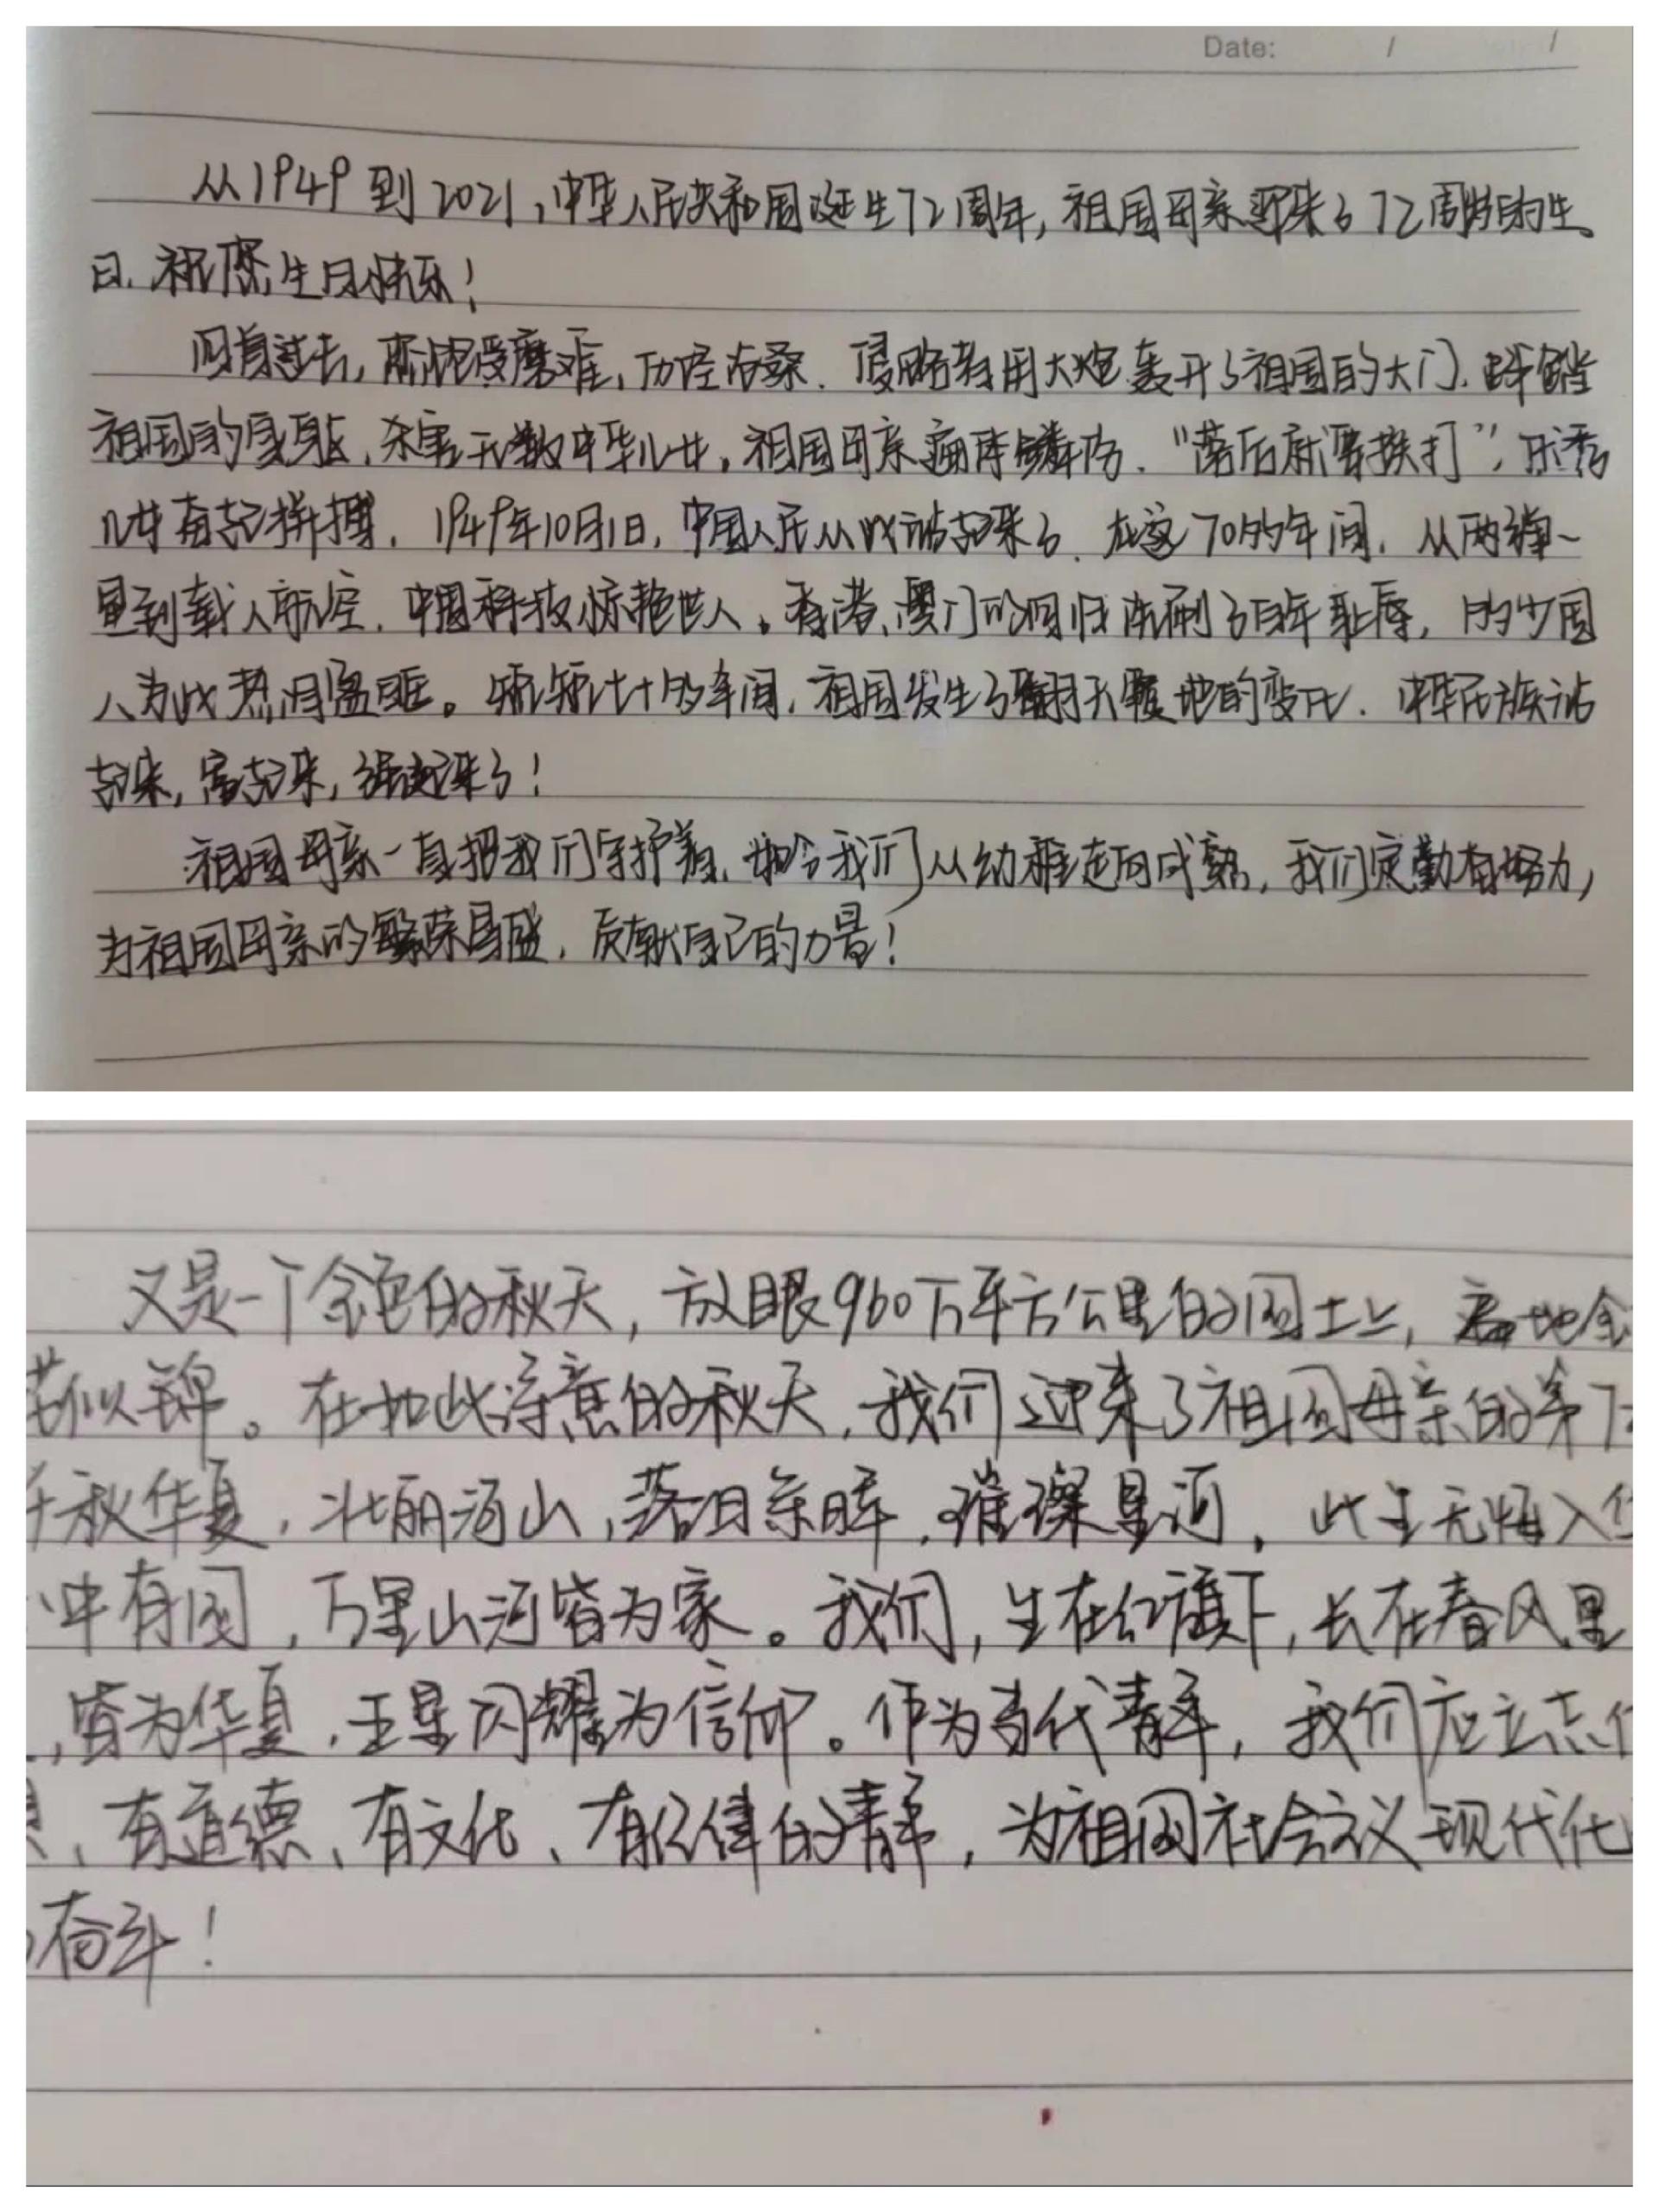 Date: / /
从1949到2021，中华人民共和国诞生72周年，祖国母亲迎来了72周岁的生
日。祝您生日快乐！
回首过去，您饱受磨难，历经沧桑。侵略者用大炮轰开了祖国的大门，
祖国的身躯，杀害无数中华儿女，祖国母亲遍体鳞伤。“落后就要挨打”，
儿女奋起拼搏。1949年10月1日，中国人民从此站起来了。在这70多年间，从两弹一
星到载人航空，中国科技惊艳世人。香港、澳门的回归洗刷了百年耻辱，多少国
人为此热泪盈眶。短短七十多年间，祖国发生了翻天覆地的变化。中华民族站
起来，富起来，强起来了！
祖国母亲一直把我们守护着，如今我们从幼稚走向成熟，我们定勤奋努力，
为祖国母亲的繁荣昌盛，贡献自己的力量！
又是一个金色的秋天，放眼960万平方公里的国土上，遍地金
似锦。在如此诗意的秋天，我们迎来了祖国母亲的第7
秋华夏，壮丽河山，落日余晖，璀璨星河，此生无悔入
中有国，万里山河皆为家。我们，生在红旗下，长在春风里
，皆为华夏，五星闪耀为信仰。作为当代青年，我们应立志
、有道德、有文化、有纪律的青年，为祖国社会主义现代化
奋斗！